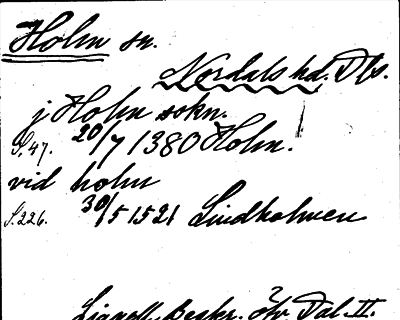 Holm sn.
Nordals hd. Dls.
j Holm sokn.
S. 47. 20/7 1380 Holm.
vid holm
S. 226. 30/5 1521 Lindholmen
Lignell, Beskr. Dal. II.